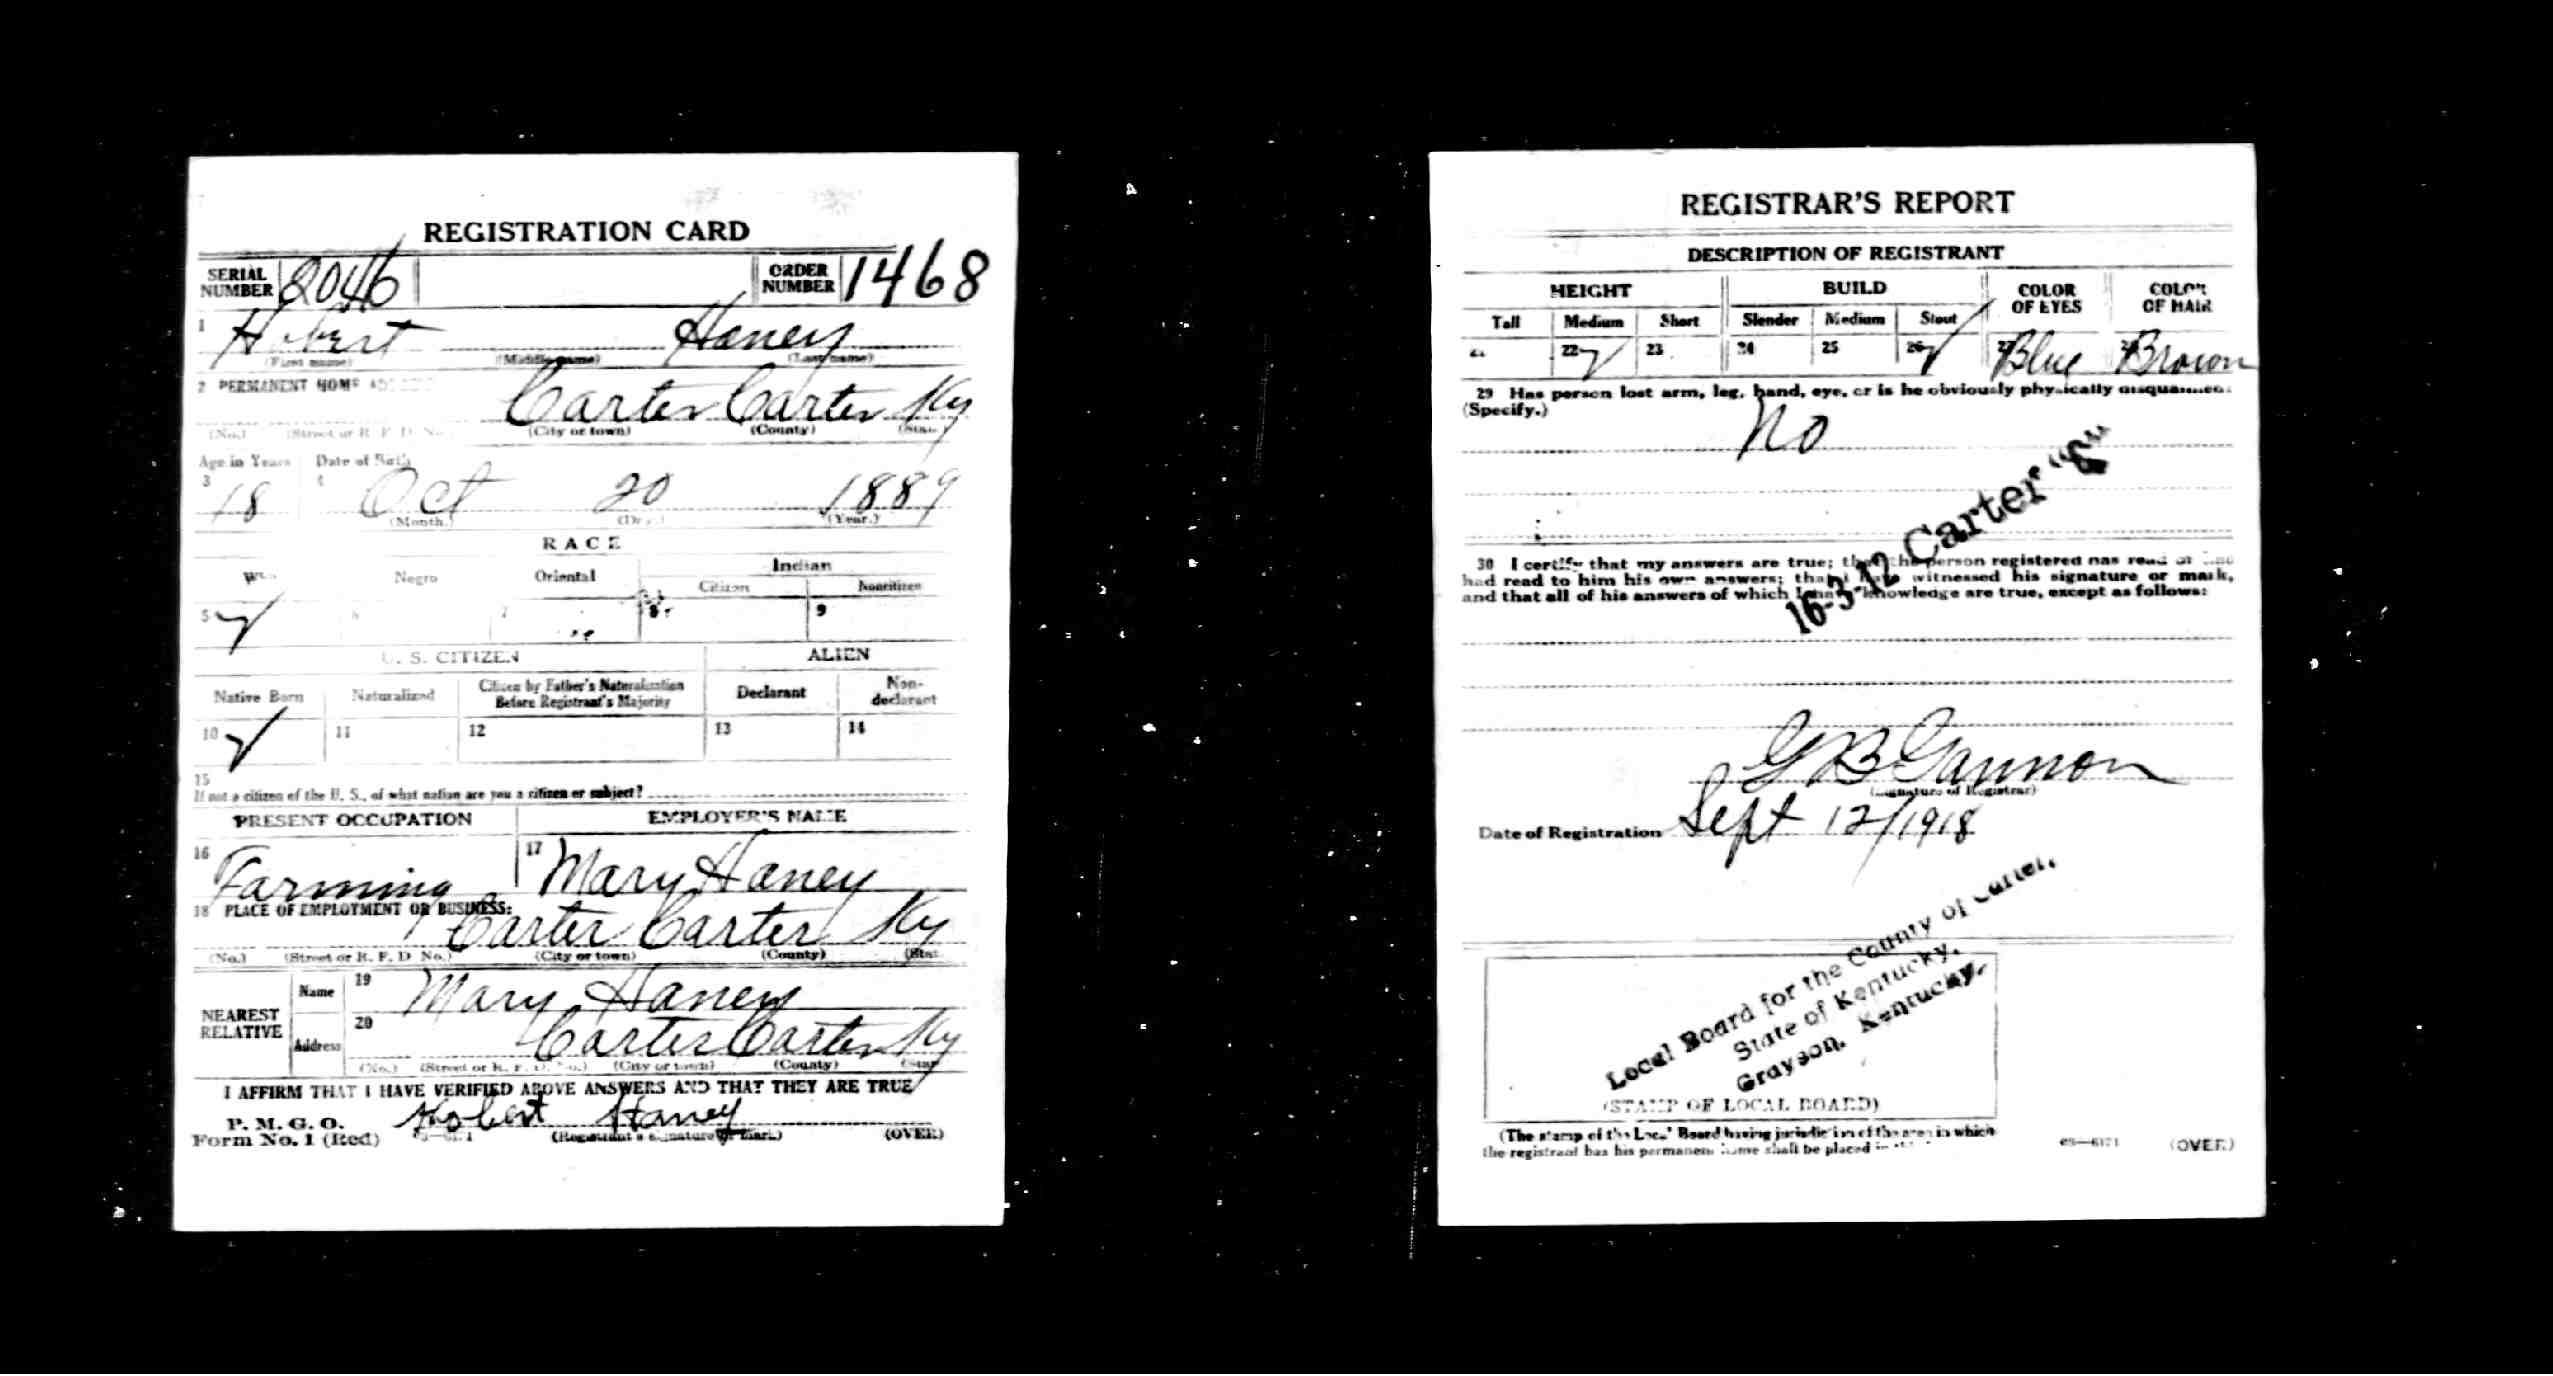 REGISTRATION CARD
SERIAL NUMBER 2046 ORDER NUMBER 1468
1 Hobert Haney
(First name) (Middle name) (Last name)
2 PERMANENT HOME
Carter Carter Ky
(No.) (Street or R. F. D. No.) (City or town) (County) (State)
Age in Years Date of Birth
3 18 4 Oct 20 1889
(Month.) (Day.) (Year.)
RACE
Negro Oriental Indian
Citizen Noncitizen
5 ✓ 6 7 8 9
U. S. CITIZEN ALIEN
Native Born Naturalized Citizen by Father's Naturalization Before Registrant's Majority Declarant Non-declarant
10 ✓ 11 12 13 14
15
If not a citizen of the U. S., of what nation are you a citizen or subject?
PRESENT OCCUPATION EMPLOYER'S NAME
16 Farming 17 Mary Haney
18 PLACE OF EMPLOYMENT OR BUSINESS:
Carter Carter Ky
(No.) (Street or R. F. D. No.) (City or town) (County) (State)
NEAREST RELATIVE
Name 19 Mary Haney
Address 20 Carter Carter Ky
(No.) (Street or R. F. D. No.) (City or town) (County) (State)
I AFFIRM THAT I HAVE VERIFIED ABOVE ANSWERS AND THAT THEY ARE TRUE
P. M. G. O.
Form No. 1 (Red) Hobert Haney
(Registrant's signature or mark) (OVER)
REGISTRAR'S REPORT
DESCRIPTION OF REGISTRANT
HEIGHT BUILD COLOR OF EYES COLOR OF HAIR
Tall Medium Short Slender Medium Stout
21 22 ✓ 23 24 25 26 ✓ 27 Blue 28 Brown
29 Has person lost arm, leg, hand, eye, or is he obviously physically disqualified?
(Specify.)
No
16-3-12 Carter "C"
30 I certify that my answers are true; that the person registered has read or has
had read to him his own answers; that I have witnessed his signature or mark,
and that all of his answers of which I have knowledge are true, except as follows:
G B Gannon
(Signature of Registrar)
Date of Registration Sept 12/1918
Local Board for the County of Carter,
State of Kentucky,
Grayson, Kentucky,
(STAMP OF LOCAL BOARD)
(The stamp of the Local Board having jurisdiction of the area in which
the registrant has his permanent home shall be placed in
03—6171 (OVER)